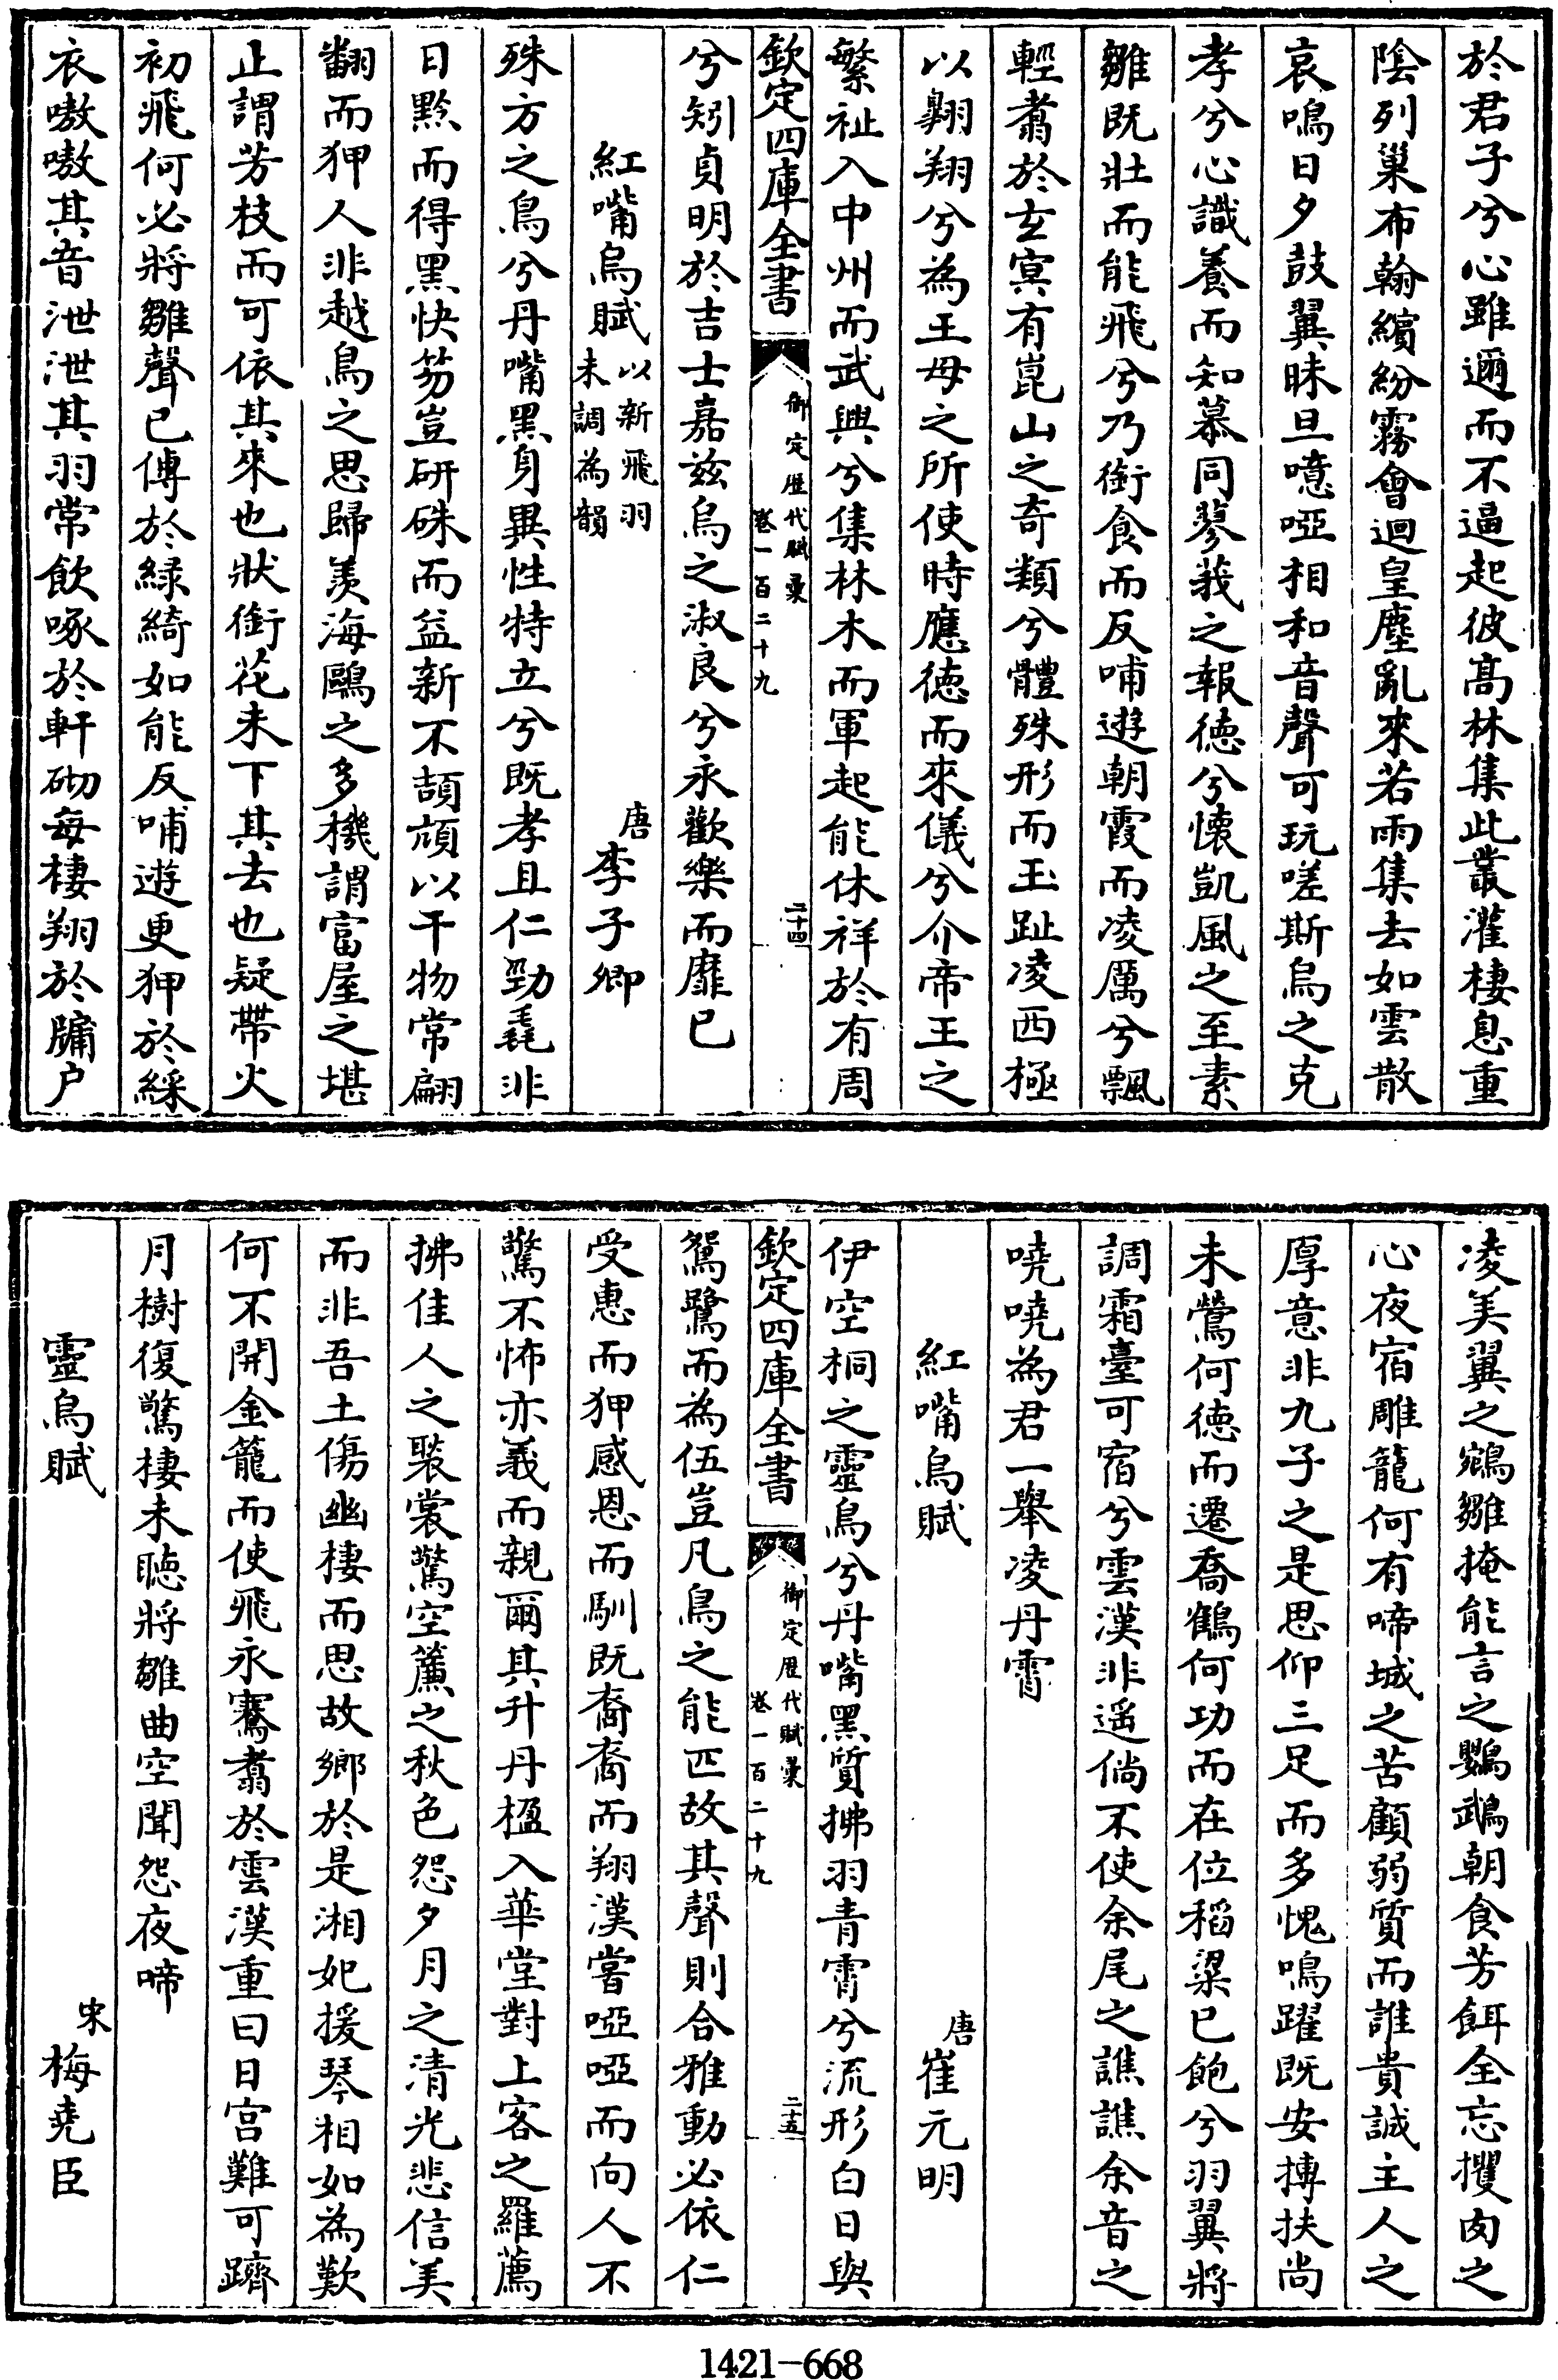 於君子兮心雖邇而不逼起彼髙林集此叢灌棲息重
陰列巢布翰繽紛霧會迴皇塵亂來若雨集去如雲散
哀鳴日夕鼓翼昧旦噫啞相和音聲可玩嗟斯烏之克
孝兮心識養而知慕同蓼莪之報徳兮懐凱風之至素
雛既壯而能飛兮乃銜食而反哺遊朝霞而凌厲兮飄
輕翥於玄㝠有崑山之竒類兮體殊形而玉趾凌西極
以翺翔兮為王母之所使時應徳而來儀兮介帝王之
繁祉入中州而武興兮集林木而軍起能休祥於有周
欽定四庫全書
御定歴代賦彙
卷一百二十九
二十四
兮矧貞明於吉士嘉兹烏之淑良兮永歡樂而靡已
紅嘴烏賦
以新飛羽
未調為韻
唐
李子卿
殊方之鳥兮丹嘴黑身異性特立兮既孝且仁勁毳非
日黔而得黑快笏豈研硃而益新不頡頏以干物常翩
翻而狎人非越鳥之思歸羨海鷗之多機謂富屋之堪
止謂芳枝而可依其來也狀銜花未下其去也疑帶火
初飛何必將雛聲已傳於緑綺如能反哺遊更狎於綵
衣嗷嗷其音泄泄其羽常飲啄於軒砌每棲翔於牖户
凌美翼之鵷雛掩能言之鸚鵡朝食芳餌全忘攫肉之
心夜宿雕籠何有啼城之苦顧弱質而誰貴誠主人之
厚意非九子之是思仰三足而多愧鳴躍既安摶扶尚
未鶯何徳而遷喬鶴何功而在位稻粱已飽兮羽翼將
調霜臺可宿兮雲漢非遥倘不使余尾之譙譙余音之
嘵嘵為君一舉凌丹霄
紅嘴烏賦
唐
崔元明
伊空桐之靈鳥兮丹嘴黑質拂羽青霄兮流形白日與
欽定四庫全書
御定歴代賦彙
卷一百二十九
二十五
鴛鷺而為伍豈凡鳥之能匹故其聲則合雅動必依仁
受惠而狎感恩而馴既裔裔而翔漢嘗啞啞而向人不
驚不怖亦義而親爾其升丹楹入華堂對上客之羅薦
拂佳人之裝裳驚空簾之秋色怨夕月之清光悲信美
而非吾土傷幽棲而思故鄉於是湘妃援琴相如為歎
何不開金籠而使飛永騫翥於雲漢重曰日宫難可躋
月樹復驚棲未聽將雛曲空聞怨夜啼
靈烏賦
宋
梅堯臣
1421-668